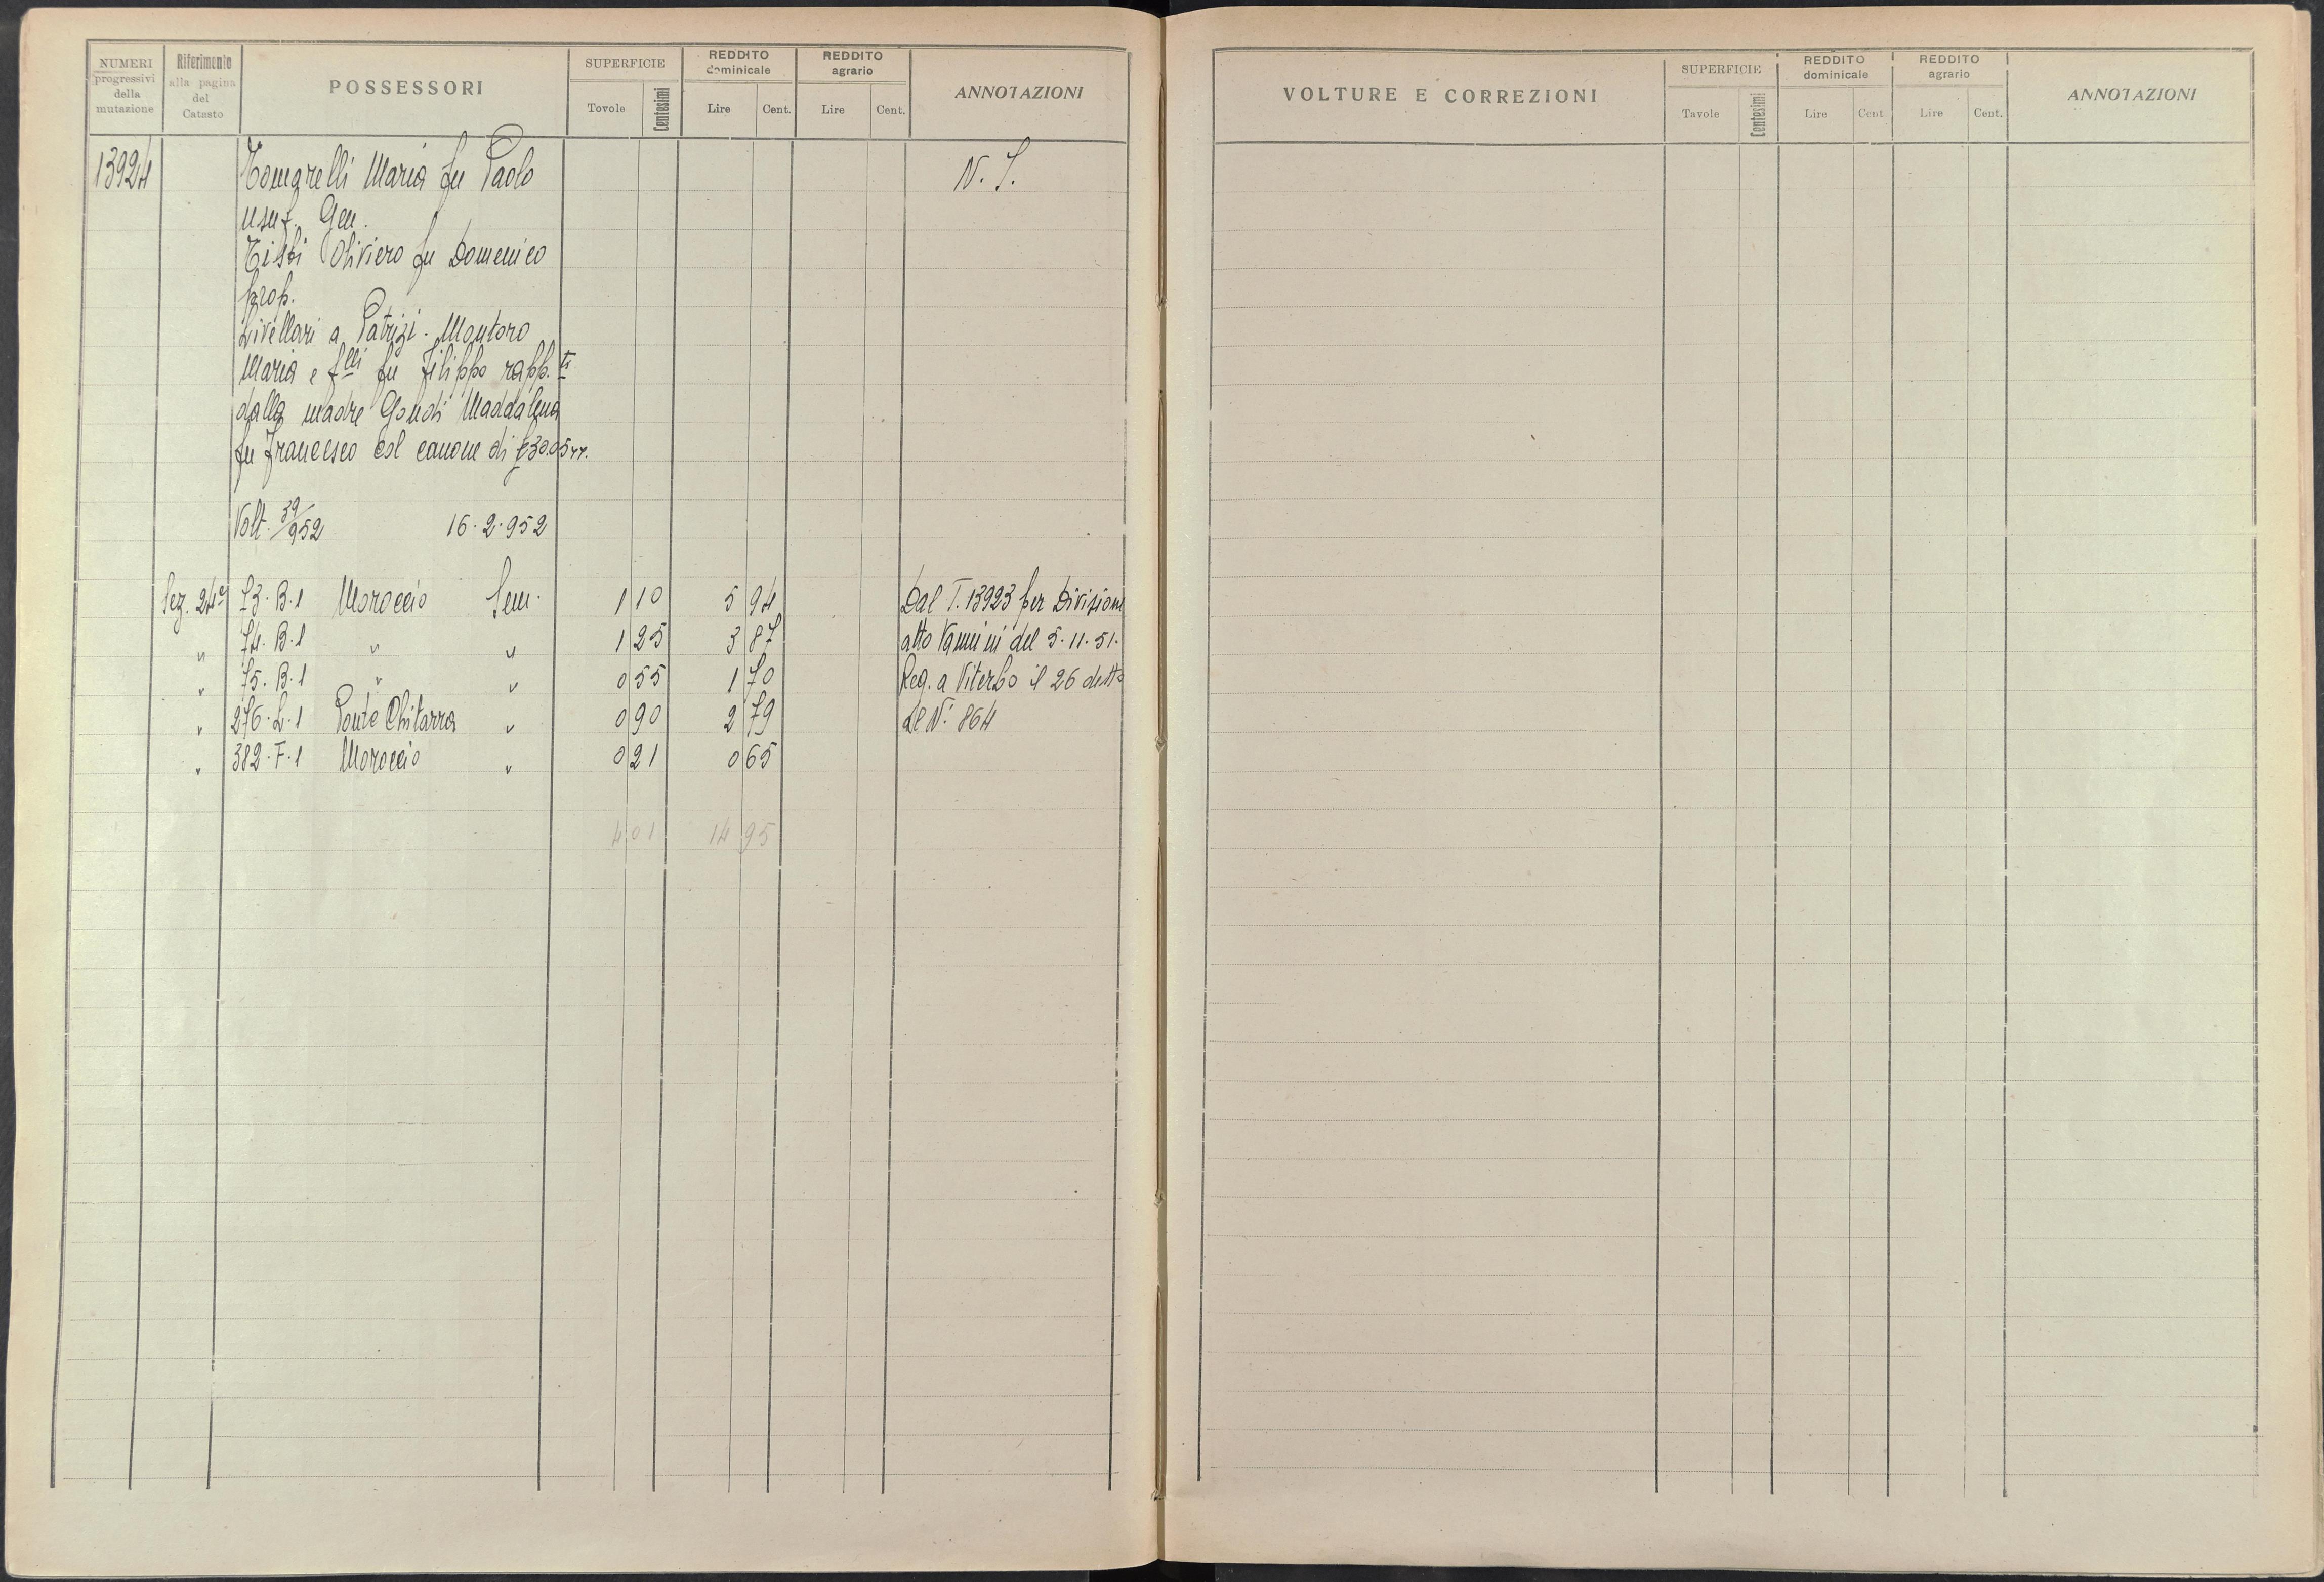 NUMERI progressivi della mutazione
Riferimento alla pagina del Catasto
POSSESSORI
SUPERFICIE
Tovole Centesimi
REDDITO dominicale
Lire Cent.
REDDITO agrario
Lire Cent.
ANNOTAZIONI
13924 Tomarelli Maria fu Paolo N. T.
usuf. Gen.
Tisbi Oliviero fu Domenico
prop.
Livellari a Patrizi-Montoro
Maria e f.lli fu Filippo rapp.ti
dalla madre Gondi Maddalena
fu Francesco Col canone di £ 30.05
Volt. 39/952 16.2.952
Sez. 24ª 73.B.1 Moroccio Sem. 1 10 5 94 Dal T. 13923 per Divisione
" 74.B.1 " " 1 25 3 87 atto Vannini del 5.11.51.
" 75.B.1 " " 0 55 1 70 Reg. a Viterbo il 26 detto
" 276.L.1 Ponte Chitarra " 0 90 2 79 al N. 864
" 382.F.1 Moroccio " 0 21 0 65
4 01 14 95
VOLTURE E CORREZIONI
SUPERFICIE
Tavole Centesimi
REDDITO dominicale
Lire Cent
REDDITO agrario
Lire Cent.
ANNOTAZIONI